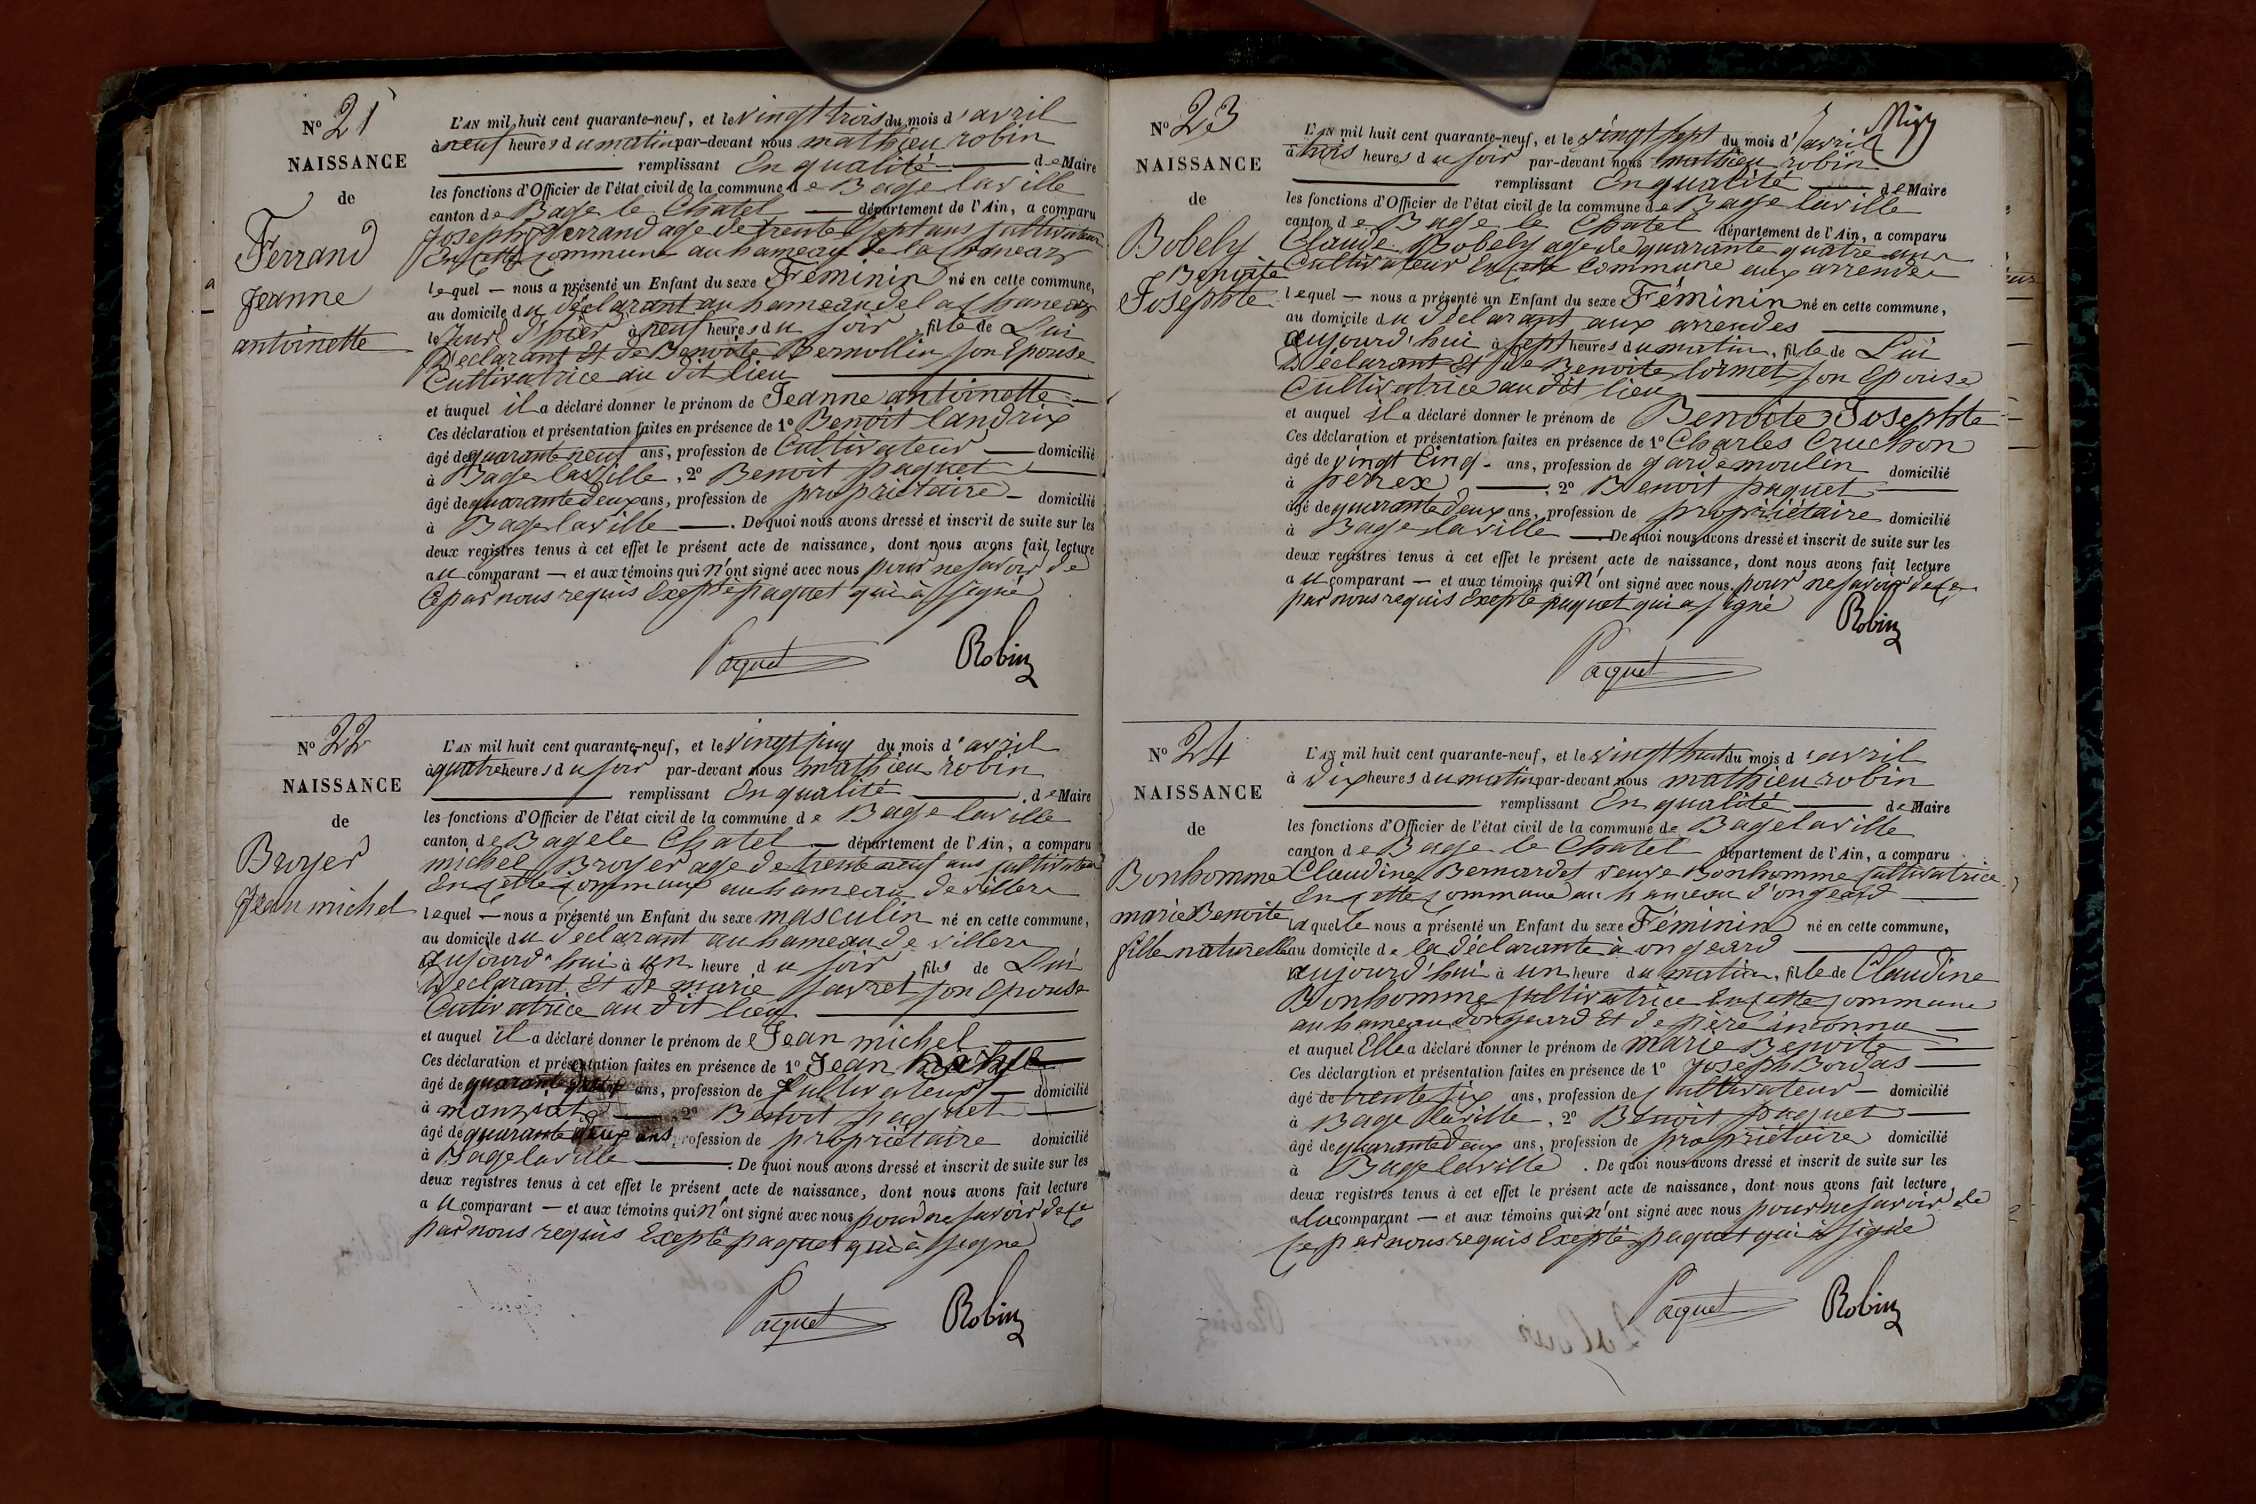 N° 21
NAISSANCE
de
Ferrand
Jeanne
antoinette
L'AN mil huit cent quarante-neuf, et le vingt trois du mois d'avril
à neuf heures du matin par-devant nous mathieu robin
remplissant En qualité de Maire
les fonctions d'Officier de l'état civil de la commune de Bage laville
canton de Bage le Chatel département de l'Ain, a comparu
Joseph Ferrand age de trente sept ans Cultivateur
En cette commune au hameau de la
lequel nous a présenté un Enfant du sexe Féminin né en cette commune,
au domicile du déclarant au hameau de la
le jour d'hier à neuf heures du soir, fille de Lui
Déclarant Et de Benoite Bernollin son Epouse
Cultivatrice au dit lieu
et auquel il a déclaré donner le prénom de Jeanne antoinette
Ces déclaration et présentation faites en présence de 1° Benoit Landrix
âgé de quarante neuf ans, profession de Cultivateur domicilié
à Bage laville, 2° Benoit paquet
âgé de quarante deux ans, profession de propriétaire domicilié
à Bage laville. De quoi nous avons dressé et inscrit de suite sur les
deux registres tenus à cet effet le présent acte de naissance, dont nous avons fait lecture
au comparant et aux témoins qui n'ont signé avec nous pour ne savoir de
Ce par nous requis Exepté paquet qui à signé
Paquet Robin
N° 22
NAISSANCE
de
Broyer
Jean michel
L'AN mil huit cent quarante-neuf, et le vingt cinq du mois d'avril
à quatre heures du soir par-devant nous mathieu robin
remplissant En qualité de Maire
les fonctions d'Officier de l'état civil de la commune de Bage laville
canton de Bage le Chatel département de l'Ain, a comparu
michel Broyer age de trente neuf ans Cultivateur
En cette commune au hameau de villers
lequel nous a présenté un Enfant du sexe masculin né en cette commune,
au domicile du déclarant au hameau de villers
aujourd'hui à un heure du soir, fils de Lui
Déclarant Et de marie favret son Epouse
Cutivatrice au dit lieu
et auquel il a déclaré donner le prénom de Jean michel
Ces déclaration et présentation faites en présence de 1° Jean
âgé de quarante ans, profession de Cultivateur domicilié
à manziat, 2° Benoit paquet
âgé de quarante deux ans, profession de propriétaire domicilié
à Bage laville. De quoi nous avons dressé et inscrit de suite sur les
deux registres tenus à cet effet le présent acte de naissance, dont nous avons fait lecture
au comparant et aux témoins qui n'ont signé avec nous pour ne savoir de Ce
par nous requis Exepté paquet qui à signé
Paquet Robin
N° 23
NAISSANCE
de
Bobely
Benoite
Josephte
L'AN mil huit cent quarante-neuf, et le vingt sept du mois d'avril
à trois heures du soir par-devant nous mathieu robin
remplissant En qualité de Maire
les fonctions d'Officier de l'état civil de la commune de Bage laville
canton de Bage le Chatel département de l'Ain, a comparu
Claude Bobely age de quarante quatre ans
Cultivateur En cette commune aux arrendes
lequel nous a présenté un Enfant du sexe Féminin né en cette commune,
au domicile du déclarant aux arrendes
aujourd'hui à sept heures du matin, fille de Lui
Déclarant Et de Benoite Cormet son Epouse
Cultivatrice au dit lieu
et auquel il a déclaré donner le prénom de Benoite Josephte
Ces déclaration et présentation faites en présence de 1° Charles Cruchon
âgé de vingt cinq ans, profession de garde moulin domicilié
à perrex, 2° Benoit paquet
âgé de quarante deux ans, profession de propriétaire domicilié
à Bage laville. De quoi nous avons dressé et inscrit de suite sur les
deux registres tenus à cet effet le présent acte de naissance, dont nous avons fait lecture
au comparant et aux témoins qui n'ont signé avec nous pour ne savoir de Ce
par nous requis Exepté paquet qui a signé
Robin
Paquet
N° 24
NAISSANCE
de
Bonhomme
marie Benoite
fille naturelle
L'AN mil huit cent quarante-neuf, et le vingt huit du mois d'avril
à dix heures du matin par-devant nous mathieu robin
remplissant En qualité de Maire
les fonctions d'Officier de l'état civil de la commune de Bage laville
canton de Bage le Chatel département de l'Ain, a comparu
Claudine Bernardet veuve Bonhomme Cultivatrice
En cette commune au hameau d'ongeard
laquelle nous a présenté un Enfant du sexe Féminin né en cette commune,
au domicile de la déclarante à ongeard
aujourd'hui à un heure du matin, fille de Claudine
Bonhomme Cultivatrice En cette commune
au hameau dongeard Et de père inconnu
et auquel Elle a déclaré donner le prénom de marie Benoite
Ces déclaration et présentation faites en présence de 1° Joseph Bordas
âgé de trente six ans, profession de Cultivateur domicilié
à Bage laville, 2° Benoit paquet
âgé de quarante deux ans, profession de propriétaire domicilié
à Bage laville. De quoi nous avons dressé et inscrit de suite sur les
deux registres tenus à cet effet le présent acte de naissance, dont nous avons fait lecture
a la comparant et aux témoins qui n'ont signé avec nous pour ne savoir de
Ce par nous requis Exepté paquet qui à signé
Paquet Robin